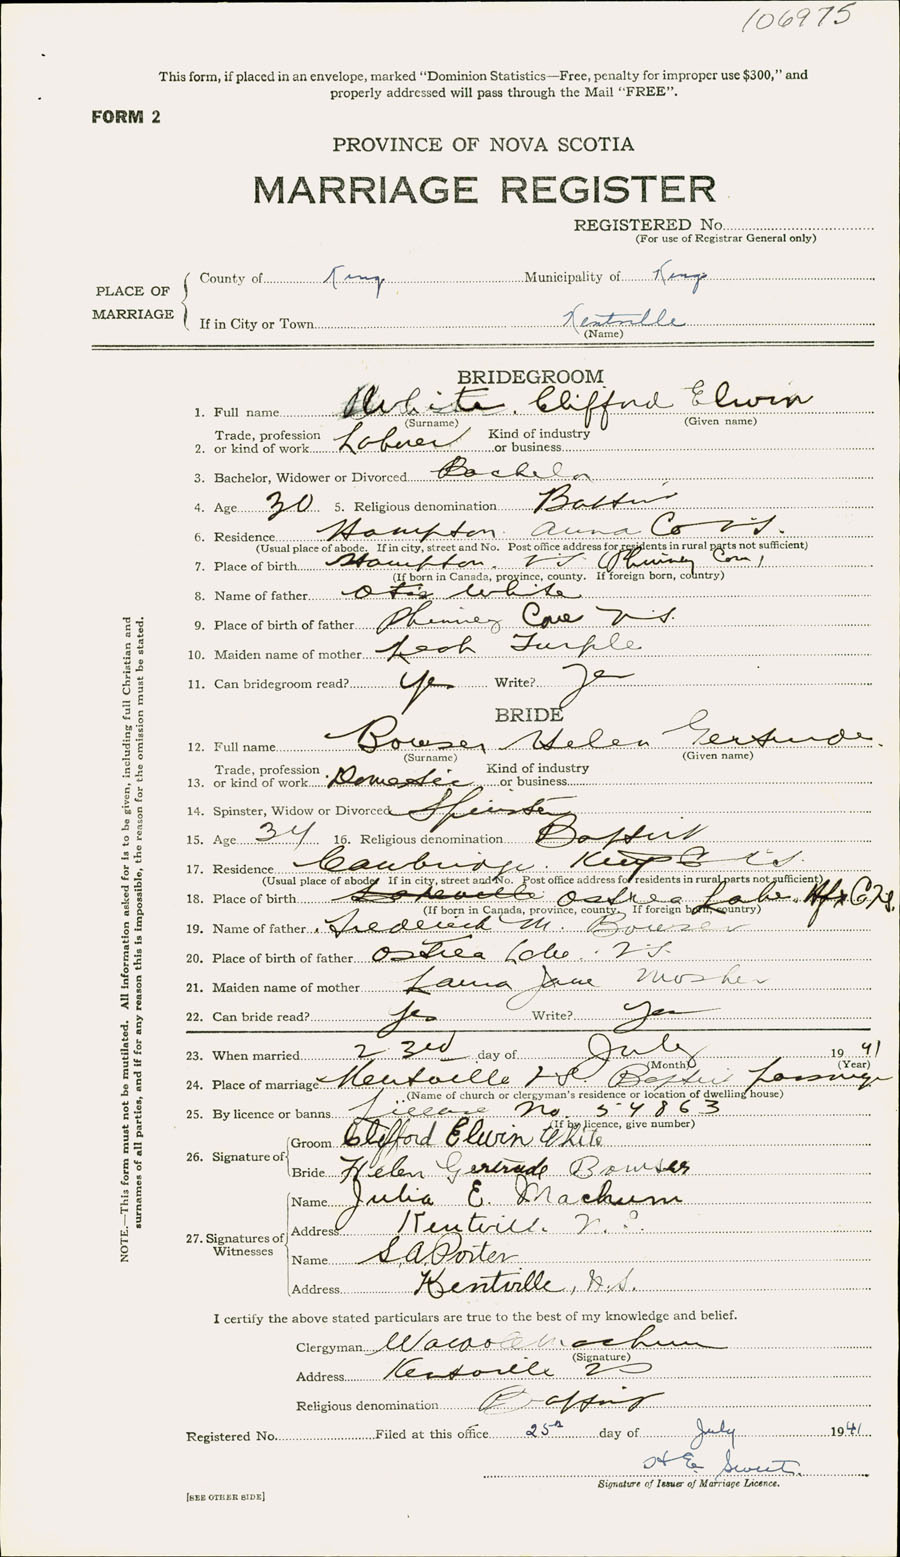 106975
This form, if placed in an envelope, marked "Dominion Statistics—Free, penalty for improper use $300," and
properly addressed will pass through the Mail "FREE".
FORM 2
PROVINCE OF NOVA SCOTIA
MARRIAGE REGISTER
REGISTERED No.
(For use of Registrar General only)
PLACE OF MARRIAGE
County of King Municipality of King
If in City or Town Kentville
(Name)
BRIDEGROOM
1. Full name White, Clifford Elwin
(Surname) (Given name)
2. Trade, profession or kind of work Laborer Kind of industry or business
3. Bachelor, Widower or Divorced Bachelor
4. Age 30 5. Religious denomination Baptist
6. Residence Hampton Anna Co N.S.
(Usual place of abode. If in city, street and No. Post office address for residents in rural parts not sufficient)
7. Place of birth Hampton. N.S. (Phinney Cove)
(If born in Canada, province, county. If foreign born, country)
8. Name of father Otis White
9. Place of birth of father Phinney Cove N.S.
10. Maiden name of mother Leah Turple
11. Can bridegroom read? Yes Write? Yes
BRIDE
12. Full name Bowser Helen Gertrude.
(Surname) (Given name)
13. Trade, profession or kind of work Domestic Kind of industry or business
14. Spinster, Widow or Divorced Spinster
15. Age 34 16. Religious denomination Baptist
17. Residence Cambridge. Kings Co N.S.
(Usual place of abode If in city, street and No. Post office address for residents in rural parts not sufficient)
18. Place of birth Ostrea Lake. Hfx. Co. N.S.
(If born in Canada, province, county. If foreign born, country)
19. Name of father Frederick M. Bowser
20. Place of birth of father Ostrea Lake. N.S.
21. Maiden name of mother Laura Jane Mosher
22. Can bride read? Yes Write? Yes
23. When married 23rd day of July 1941
(Month) (Year)
24. Place of marriage Kentville N.S. Baptist Parsonage
(Name of church or clergyman's residence or location of dwelling house)
25. By licence or banns License No. 54863
(If by licence, give number)
26. Signature of Groom Clifford Elwin White
Bride Helen Gertrude Bowser
27. Signatures of Witnesses
Name Julia E. Machum
Address Kentville. N.S.
Name S.A. Porter
Address Kentville, N.S.
I certify the above stated particulars are true to the best of my knowledge and belief.
Clergyman Machum
(Signature)
Address Kentville
Religious denomination Baptist
Registered No. Filed at this office 25th day of July 1941
H E Sweet
Signature of Issuer of Marriage Licence.
[SEE OTHER SIDE]
NOTE.—This form must not be mutilated. All information asked for is to be given, including full Christian and
surnames of all parties, and if for any reason this is impossible, the reason for the omission must be stated.